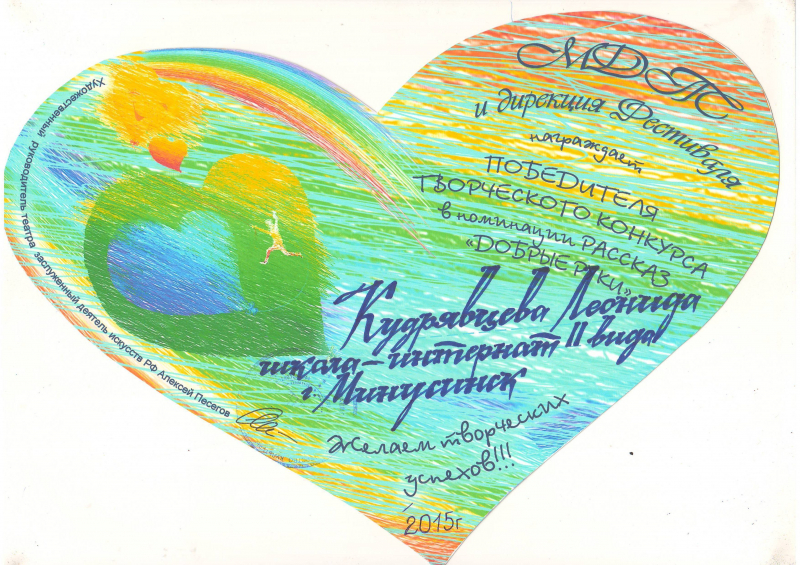 МДТ
и дирекция Фестиваля
награждает
ПОБЕДИТЕЛЯ
ТВОРЧЕСКОГО КОНКУРСА
в номинации РАССКАЗ
«ДОБРЫЕ РУКИ»
Кудрявцева Леонида
школа-интернат II вида
г. Минусинск
Желаем творческих
успехов!!!
2015г
Художественный руководитель театра заслуженный деятель искусств РФ Алексей Песегов